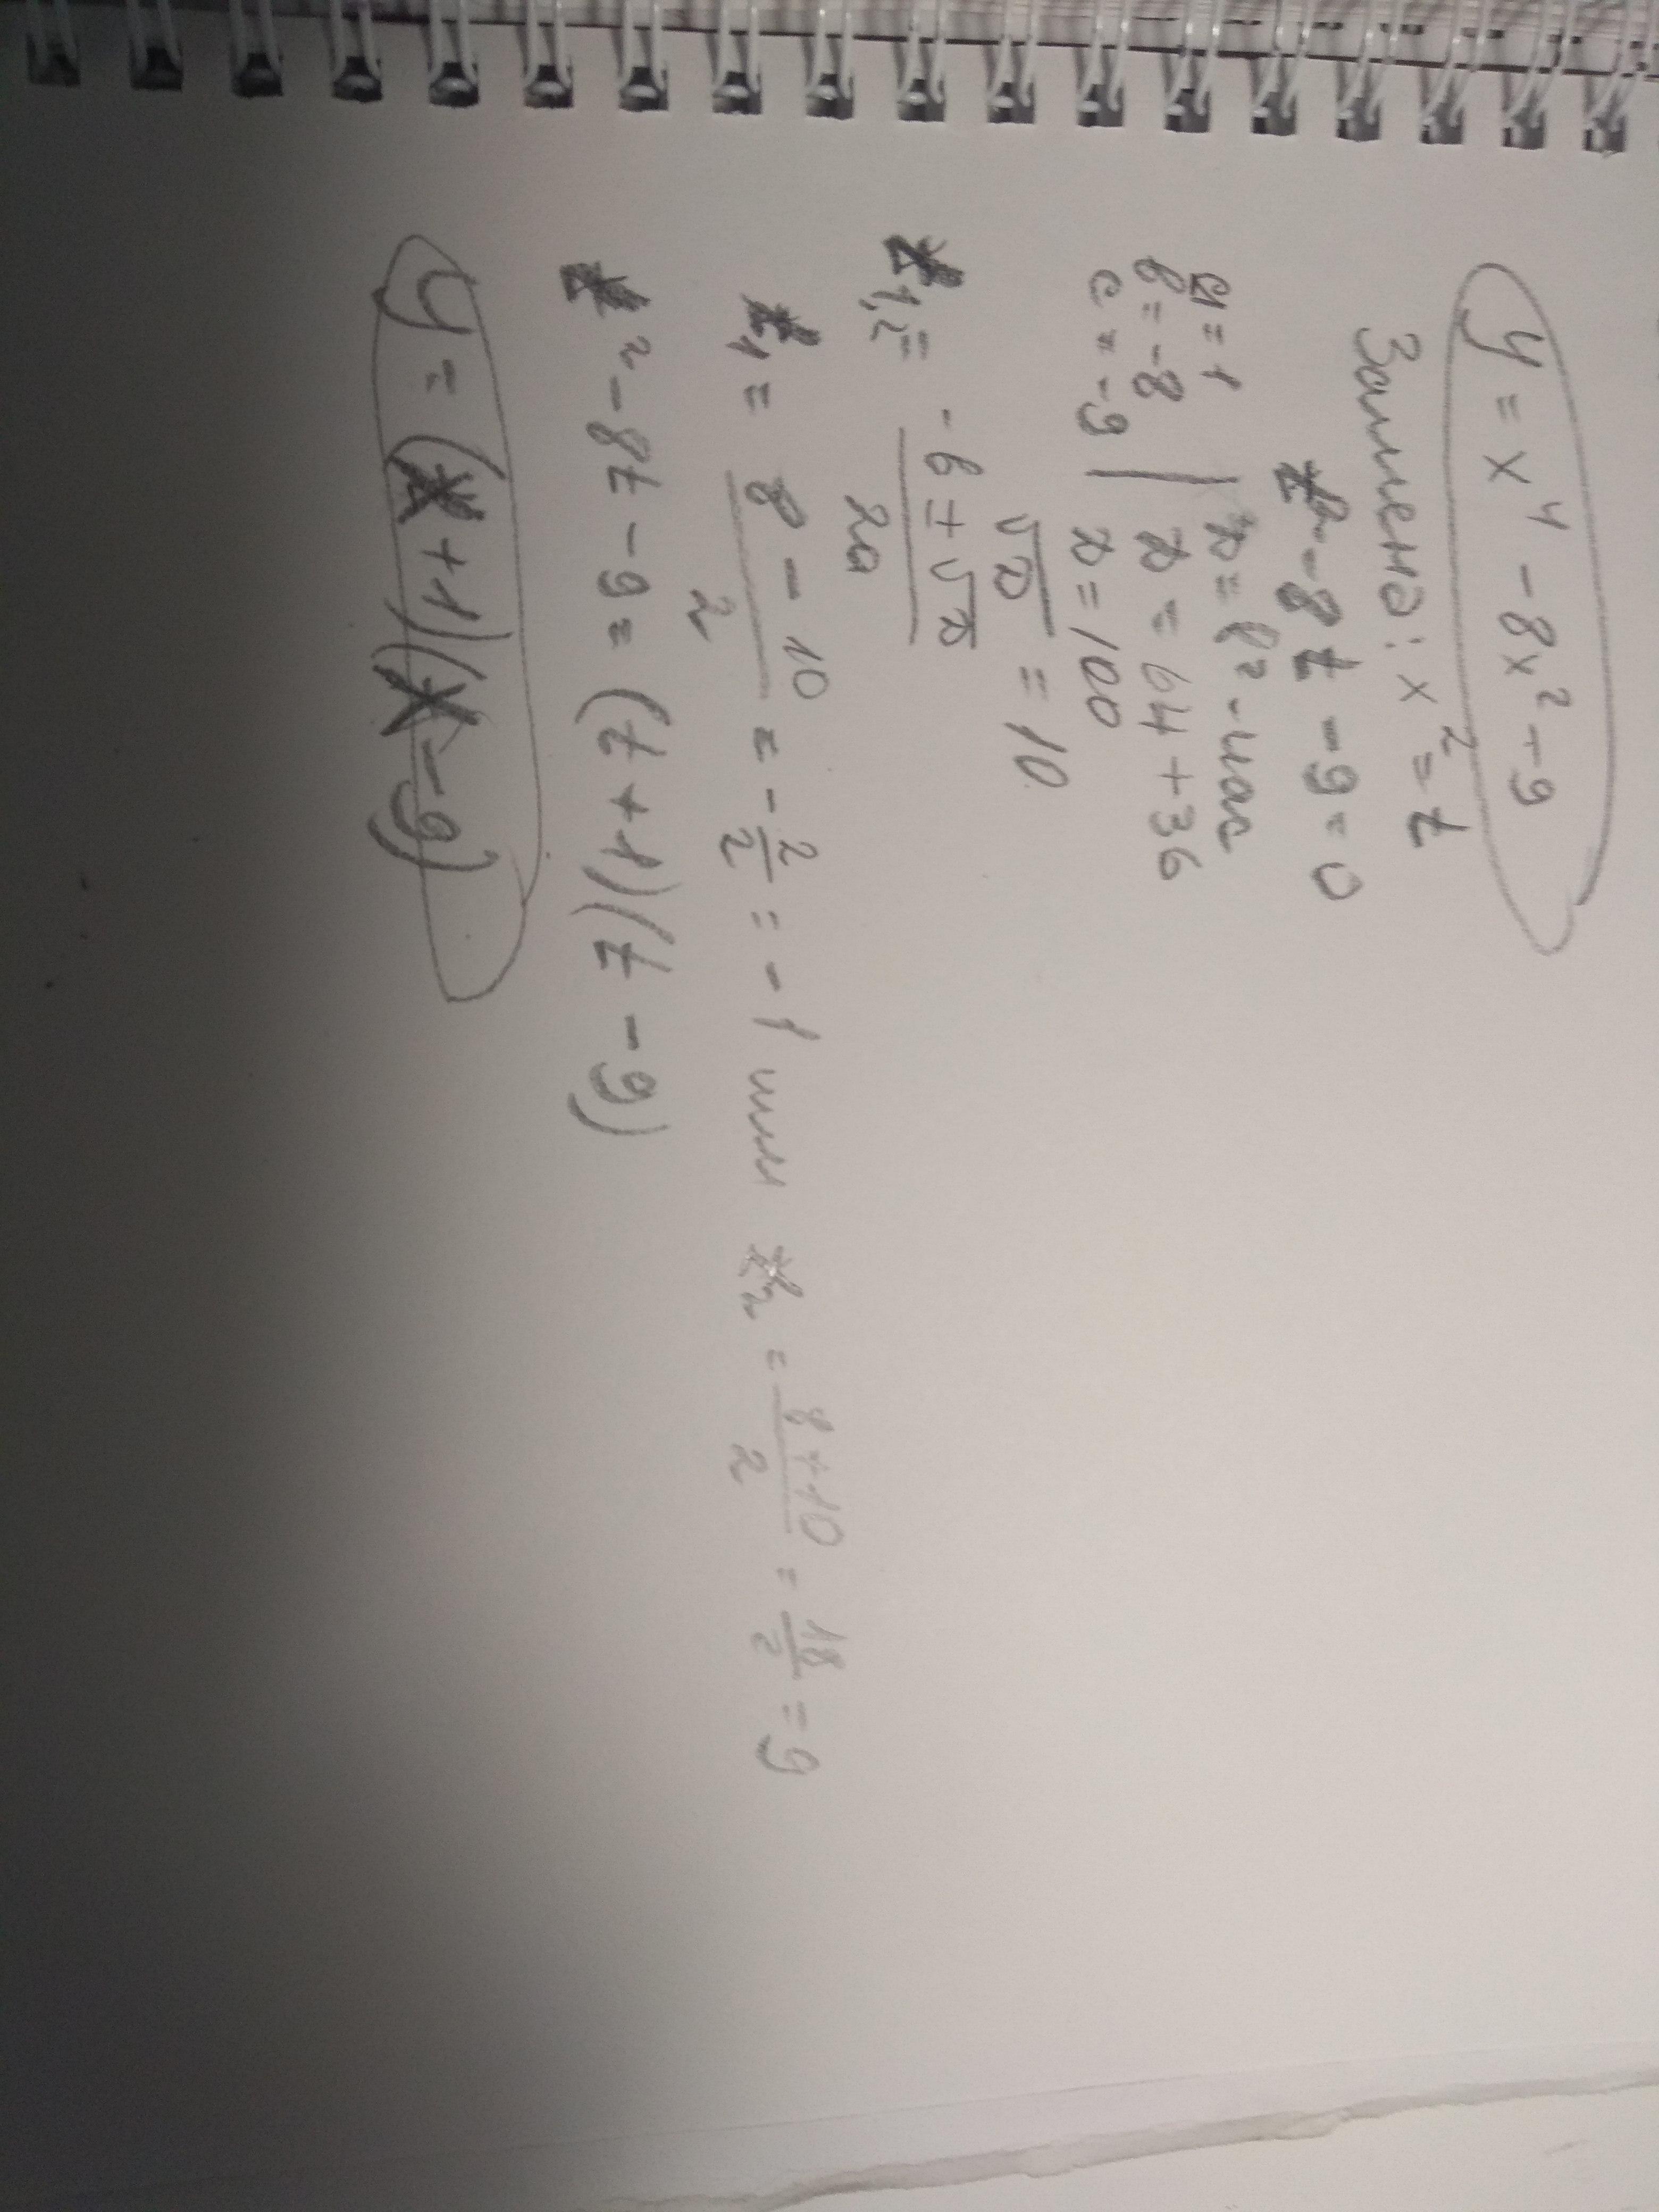 y = x⁴ - 8x² - 9
Замена: x² = t
t² - 8t - 9 = 0
a = 1 | D = b² - 4ac
b = -8 | D = 64 + 36
c = -9 | D = 100
√D = 10
t1,2 = (-b ± √D) / 2a
t1 = (8 - 10) / 2 = -2/2 = -1 или t2 = (8 + 10) / 2 = 18/2 = 9
t² - 8t - 9 = (t + 1)(t - 9)
y = (x + 1)(x - 9)